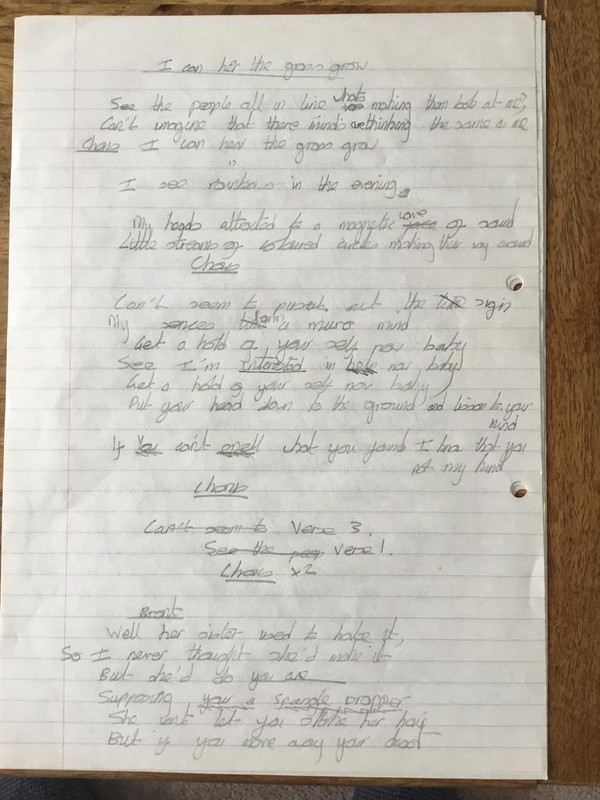 I can her the grass grow
See the people all in line whats making them look at me?
Can't imagine that there minds are thinking the same as me
Chorus I can hear the grass grow
"
I see rainbows in the evening
My heads attracted to a magnetic love of sound
Little streams of coloured circles making their way around
Chorus
Can't seem to out the sign
My a mind
Get a hold of your self now baby
See I'm Interested in help now baby
Get a hold of your self now baby
Put your head down to the ground and to your mind
If You can't what you found I know that you
not my kind
Chorus
Can't seem to Verse 3.
See the peop Verse 1.
Chorus x2
Well her sister used to hate it,
So I never thought she'd make it
But she'd do you are
Supposing you a spangle dropper
She wont let you her hair
But if you move away your